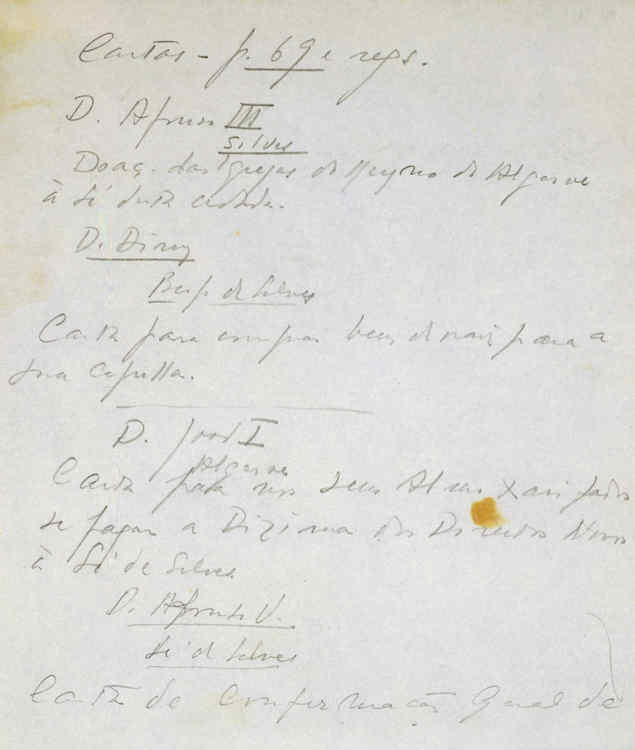 Cartas - p. 69 e segs.
D. Afonso III
Silves
Doaç. das Igrejas do Reyno do Algarve
à Sé desta cidade.
D. Diniz
Bisp. de Silves
Carta para comprar bens de raiz para a
sua capella.
D. João I
Algarve
Carta para nos seus Almoxarifados
se pagar a Dizima dos Direitos Novos
à Sé de Silves
D. Afonso V.
Sé de Silves
Carta de Confirmação Geral de